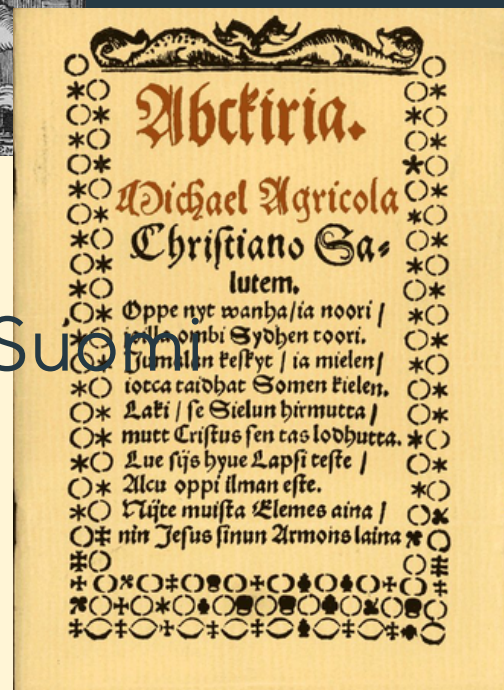 Abckiria.
Michael Agricola
Christiano Sa⸗
lutem.
Oppe nyt wanha/ia noori /
ombi Sydhen toori.
Suomi
keskyt / ia mielen/
iotca taidhat Somen kielen.
Laki / se Sielun hirmutta /
mutt Cristus sen tas lodhutta.
Lue sijs hyue Lapsi teste /
Alcu oppi ilman este.
Nijte muista Elemes aina /
nin Jesus sinun Armons laina